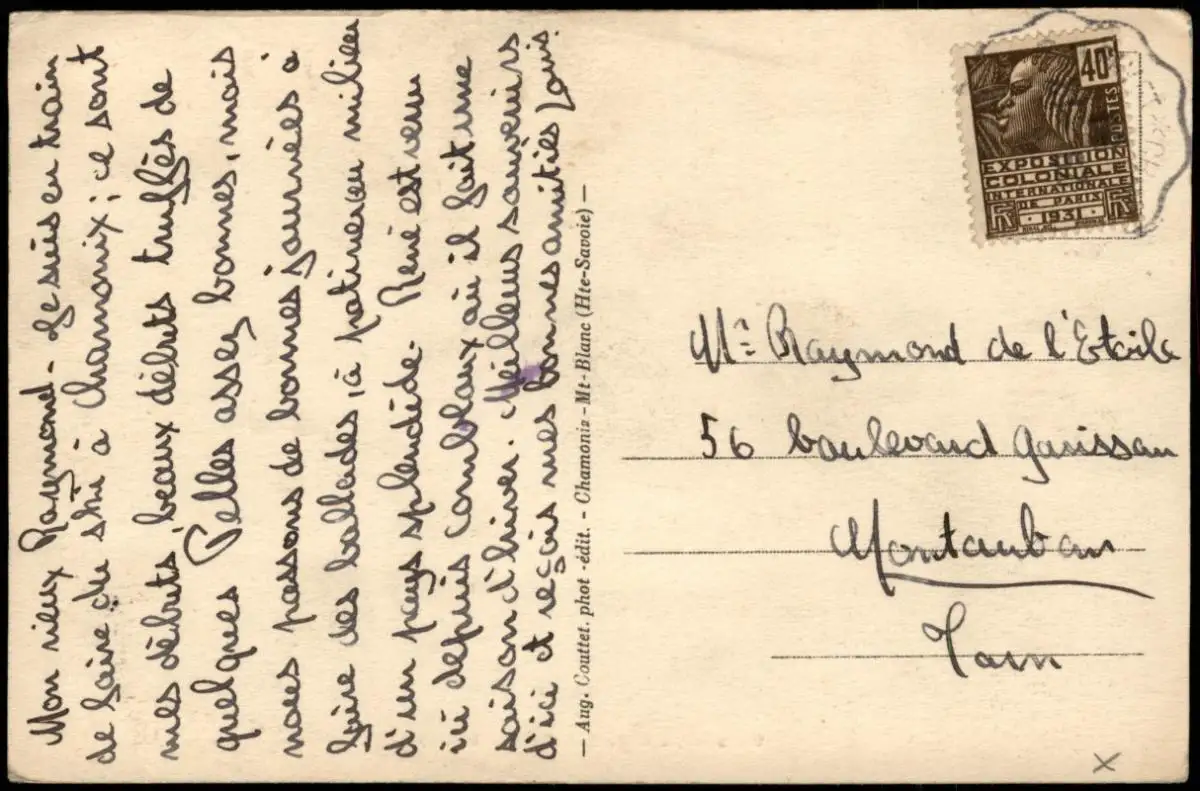 Mon vieux Raymond - Je suis en train
de faire du ski à Chamonix ; ce sont
mes débuts, beaux débuts truffés de
quelques Pelles assez bonnes, mais
nous passons de bonnes journées à
faire des ballades, à patiner au milieu
d'un pays splendide. René est venu
ici depuis Combloux où il fait une
saison d'hiver. Meilleurs souvenirs
d'ici et reçois mes bonnes amitiés Louis.
— Aug. Couttet. phot -édit. - Chamonix - Mt-Blanc (Hte-Savoie) —
40c
POSTES
EXPOSITION
COLONIALE
INTERNATIONALE
DE PARIS
RF 1931 RF
Mr Raymond de l'Etoile
56 boulevard Garisson
Montauban
Tarn
X